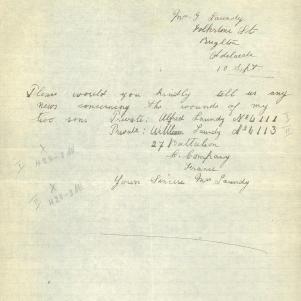 Mrs G Laundy
Folkstone St
Brighton
Adelaide
10 Sept
Please would you kindly tell us any
news concerning the wounds of my
two sons Private. Alfred Laundy No 4111 I
Private. William Laundy No 4113 II
27 Battalion
C. Company
France
Yours Sincere Mrs Laundy
X
I
X
II